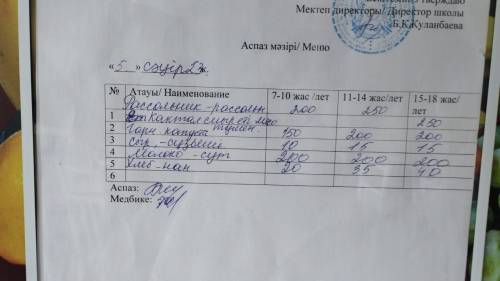 Бекітемін/ Утверждаю
Мектеп директоры/ Директор школы
Б.К.Куланбаева
Аспаз мәзірі/ Меню
«5» сәуір
№ Атауы/ Наименование 7-10 жас /лет 11-14 жас/лет 15-18 жас/ лет
Рассольник - рассольн 200 250 250
1
2 Гарн. капуста тушен. 150 200 200
3 Сыр - 10 15 15
4 Молоко - сүт 200 200 200
5 Хлеб - нан 20 35 40
6
Аспаз:
Медбике: